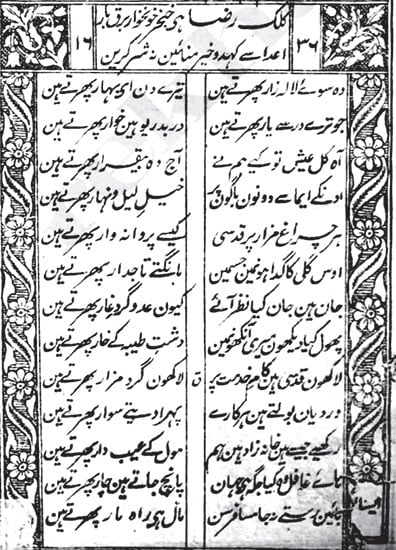 ۳۶ کلک رضا ہی خنجر خونخوار برق بار ۱۶
اعدا سے کہدو خیر منائین نہ شر کرین
وہ سوے لالہ زار پھرتے ہین تیرے دن ای بہار پھرتے ہین
جو ترے در سے یار پھرتے ہین در بدر یوہین خوار پھرتے ہین
آہ کل عیش تو کیے ہم نے آج وہ بیقرار پھرتے ہین
اونکے ایما سے دونون باگون پر خیل لیل و نہار پھرتے ہین
ہر چراغ مزار پر قدسی کیسے پروانہ وار پھرتے ہین
اوس گلی کا گدا ہون مین جسمین مانگتے تاجدار پھرتے ہین
جان ہین جان کیا نظر آئے کیون عدو گرد غار پھرتے ہین
پھول کیا دیکھون میری آنکھونمین دشت طیبہ کے خار پھرتے ہین
لاکھون قدسی ہین کام خدمت پر ق لاکھون گرد مزار پھرتے ہین
وردیان بولتے ہین ہرکارے پہرا دیتے سوار پھرتے ہین
رکھیے جیسے ہین خانہ زاد ہین ہم مول کے عیب دار پھرتے ہین
ہائے غافل وہ کیا جگہ ہی جہان پانچ جاتے ہین چار پھرتے ہین
بائین رستے نہ جا مسافر سن مال ہی راہ مار پھرتے ہین